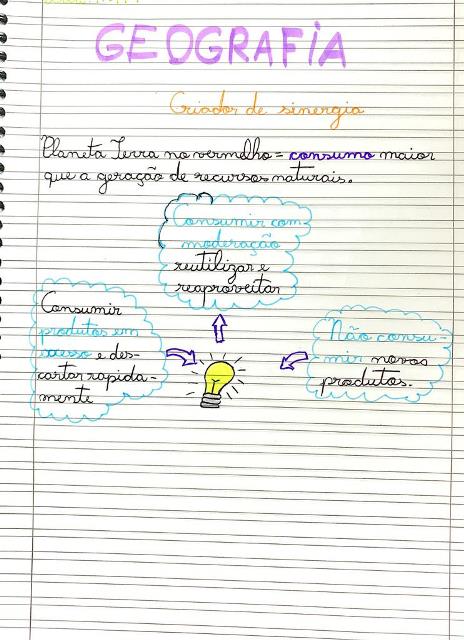 GEOGRAFIA
Criador de sinergia
Planeta Terra no vermelho = consumo maior
que a geração de recursos naturais.
Consumir com
moderação
reutilizar e
reaproveitar
Consumir
produtos em
e des-
cartar rapida-
mente
Não consu-
mir novos
produtos.